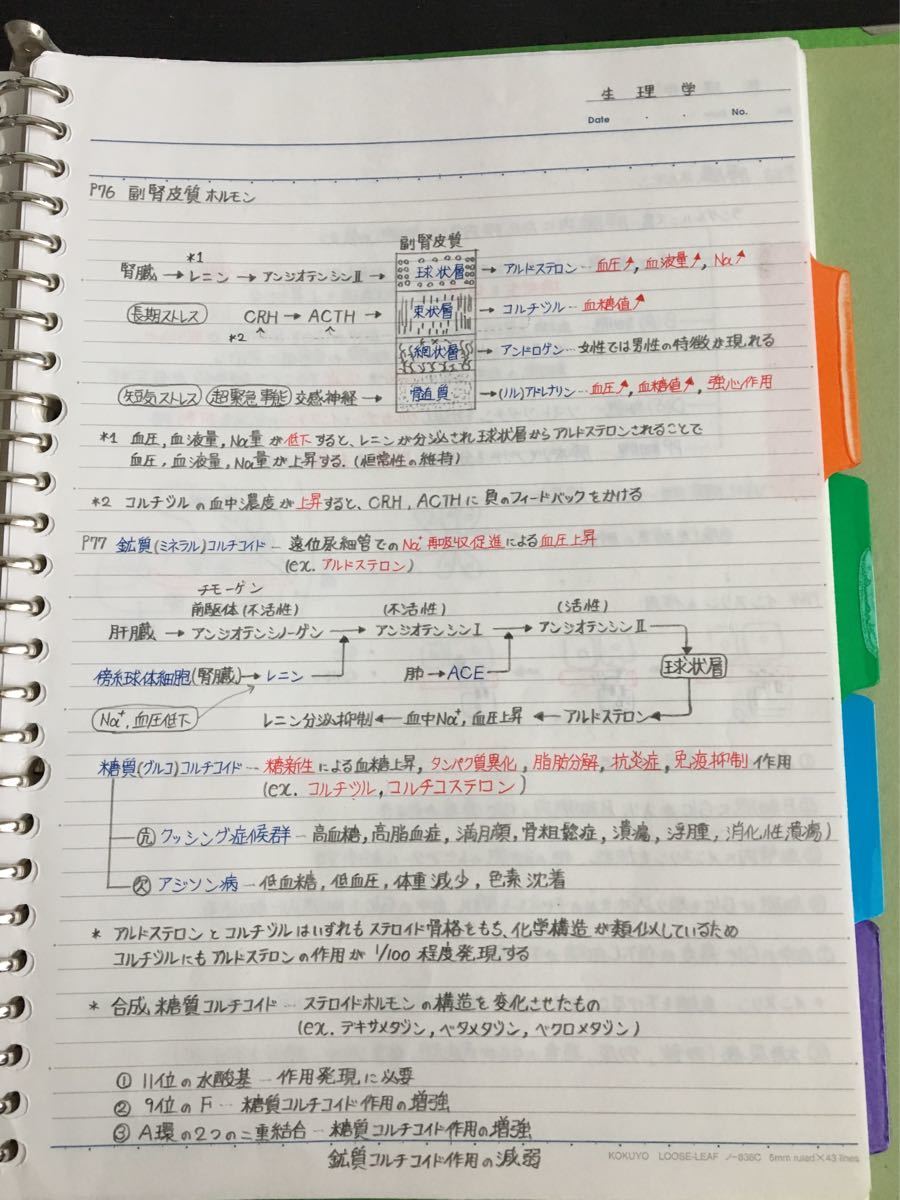 生理学
Date ・ ・ No.
P76 副腎皮質ホルモン
副腎皮質
*1
腎臓 → レニン → アンジオテンシンⅡ → 球状層 → アルドステロン…血圧↗, 血液量↗, Na↗
長期ストレス CRH → ACTH → 束状層 → コルチゾル…血糖値↗
*2
網状層 → アンドロゲン…女性では男性の特徴が現れる
短気ストレス 超緊急事態 交感神経 → 髄質 → (ノル)アドレナリン…血圧↗, 血糖値↗, 強心作用
*1 血圧, 血液量, Na量が低下すると、レニンが分泌され球状層からアルドステロンされることで
血圧, 血液量, Na量が上昇する. (恒常性の維持)
*2 コルチゾルの血中濃度が上昇すると、CRH, ACTHに負のフィードバックをかける
P77 鉱質(ミネラル)コルチコイド…遠位尿細管でのNa⁺再吸収促進による血圧上昇
(ex. アルドステロン)
チモーゲン
前駆体(不活性) (不活性) (活性)
肝臓 → アンジオテンシノーゲン → アンジオテンシンⅠ → アンジオテンシンⅡ
傍糸球体細胞(腎臓) → レニン 肺 → ACE 球状層
Na⁺, 血圧低下 レニン分泌抑制 ← 血中Na⁺, 血圧上昇 ← アルドステロン
糖質(グルコ)コルチコイド…糖新生による血糖上昇, タンパク質異化, 脂肪分解, 抗炎症, 免疫抑制作用
(ex. コルチゾル, コルチコステロン)
亢 クッシング症候群…高血糖, 高脂血症, 満月顔, 骨粗鬆症, 潰瘍, 浮腫, 消化性潰瘍)
欠 アジソン病…低血糖, 低血圧, 体重減少, 色素沈着
* アルドステロンとコルチゾルはいずれもステロイド骨格をもち、化学構造が類似しているため
コルチゾルにもアルドステロンの作用が1/100程度発現する
* 合成糖質コルチコイド…ステロイドホルモンの構造を変化させたもの
(ex. デキサメタゾン, ベタメタゾン, ベクロメタゾン)
① 11位の水酸基…作用発現に必要
② 9位のF…糖質コルチコイド作用の増強
③ A環の2つの二重結合…糖質コルチコイド作用の増強
鉱質コルチコイド作用の減弱
KOKUYO LOOSE-LEAF ノ-836C 6mm ruled×43 lines